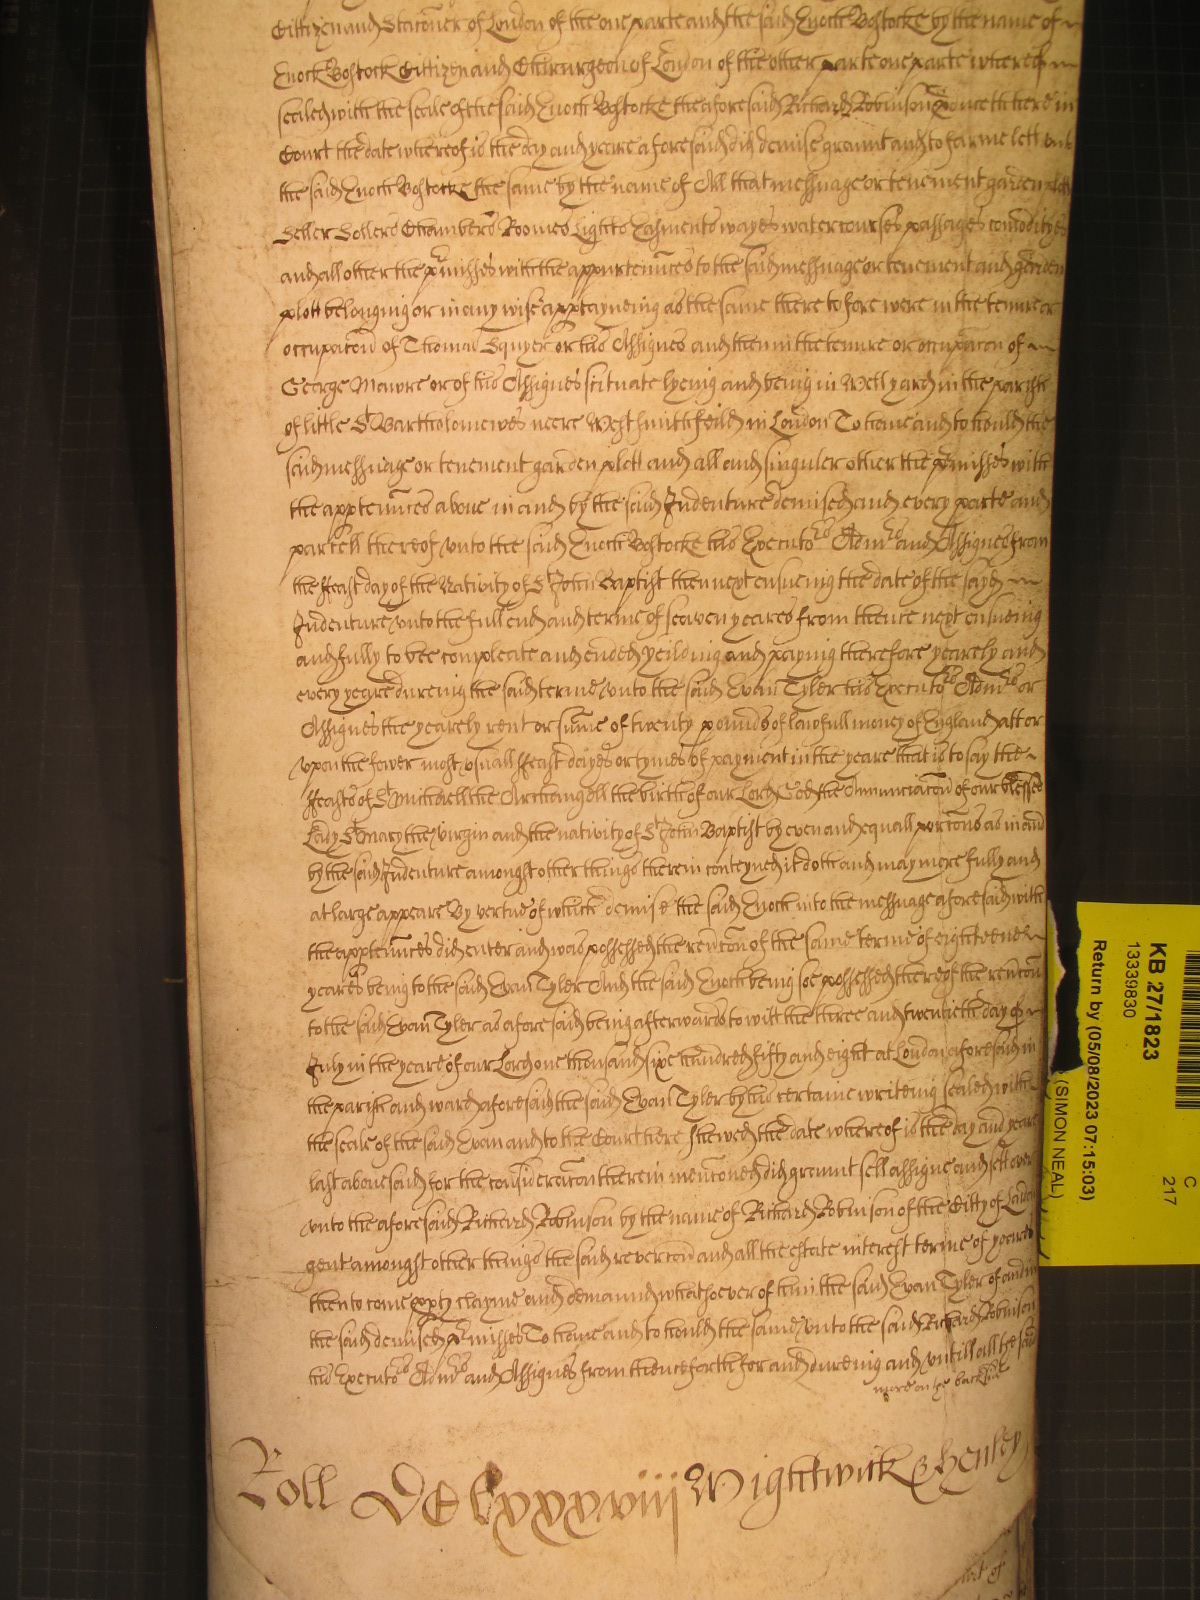 Cittizen and Stac̃oner of London of the one parte and the said Enoch Bostocke by the name of
Enoch Bostock Cittizen and Chirurgeon of London of the other parte one parte whereof
sealed with the seale of the said Enoch Bostocke the aforesaid Richard Robinson bringeth here in
Court the date whereof is the day and yeare aforesaid did demise graunt and to farme lett unto
the said Enoch Bostocke the same by the name of All that messuage or tenement garden plott
Seller Sollers Chambers Roomes Lights Easments wayes watercourses passages com̃odityes
and all other the p̃misses with the appurten̄nces to the said messuage or tenement and garden
plott belonging or in any wise apptayneing as the same there tofore were in the tenure or
occupac̃on of Thomas Squyer or his Assignes and then in the tenure or occupac̃on of
George Mawre or of his Assignes scituate lyeing and being in Well yard in the parish
of little St Bartholomewes neere West smithfeild in London To haue and to hould the
said messuage or tenement garden plott and all and singuler other the p̃misses with
the apptenñces aboue in and by the said Indenture demised and every parte and
parcell thereof vnto the said Enoch Bostocke his Executors Admrs and Assignes from
the ffeast day of the Nativity of St John Baptist then next ensueing the date of the sayd
Indenture vnto the full end and terme of seaven yeares from thence next ensueing
and fully to bee compleate and ended yeilding and paying therefore yearely and
every yeare dureing the said terme vnto the said Evan Tyler his Executors Admrs or
Assignes the yearely rent or sum̃e of twenty pounds of lawfull money of England att or
vpon the fower most vsuall ffeast dayes or tymes of payment in the yeare that is to say the
ffeasts of St Michaell the Archangell the birth of our Lord God the Annunciac̃on of our blessed
Lady St Mary the virgin and the nativity of St John Baptist by even and equall porc̃ons as in and
by the said Indenture amongst other things therein conteyned it doth and may more fully and
at large appeare By vertue of which demise the said Enoch into the messuage aforesaid with
the apptenñces did enter and was possessed the rev̄c̃on of the same terme of eighteene
yeares being to the said Evan Tyler And the said Enoch being soe possessed thereof the rev̄c̃on
to the said Evan Tyler as aforesaid being afterwards to witt the three and twentieth day of
July in the yeare of our Lord one thousand six hundred fifty and eight at London aforesaid in
the parish and ward aforesaid the said Evan Tyler by his certaine writeing sealed with
the seale of the said Evan and to the Court here shewed the date whereof is the day and yeare
last abouesaid for the considerac̃on therein menc̃oned did graunt sell assigne and sett over
vnto the aforesaid Richard Robinson by the name of Richard Robinson of the Citty of London
gent amongst other things the said reverc̃on and all the estate interest terme of yeares
then to come ppty clayme and demaund whatsoever of him the said Evan Tyler of and in
the said demised p̃misses To haue and to hould the same vnto the said Richard Robinson
his Executors Admrs and Assignes from thenceforth for and dureing and untill all the said
more on the backside
Roll DClxxxxviii Wightwick & Henley
KB 27/1823
13339830
Return by (05/08/2023 07:15:03)
(SIMON NEAL)
C
217